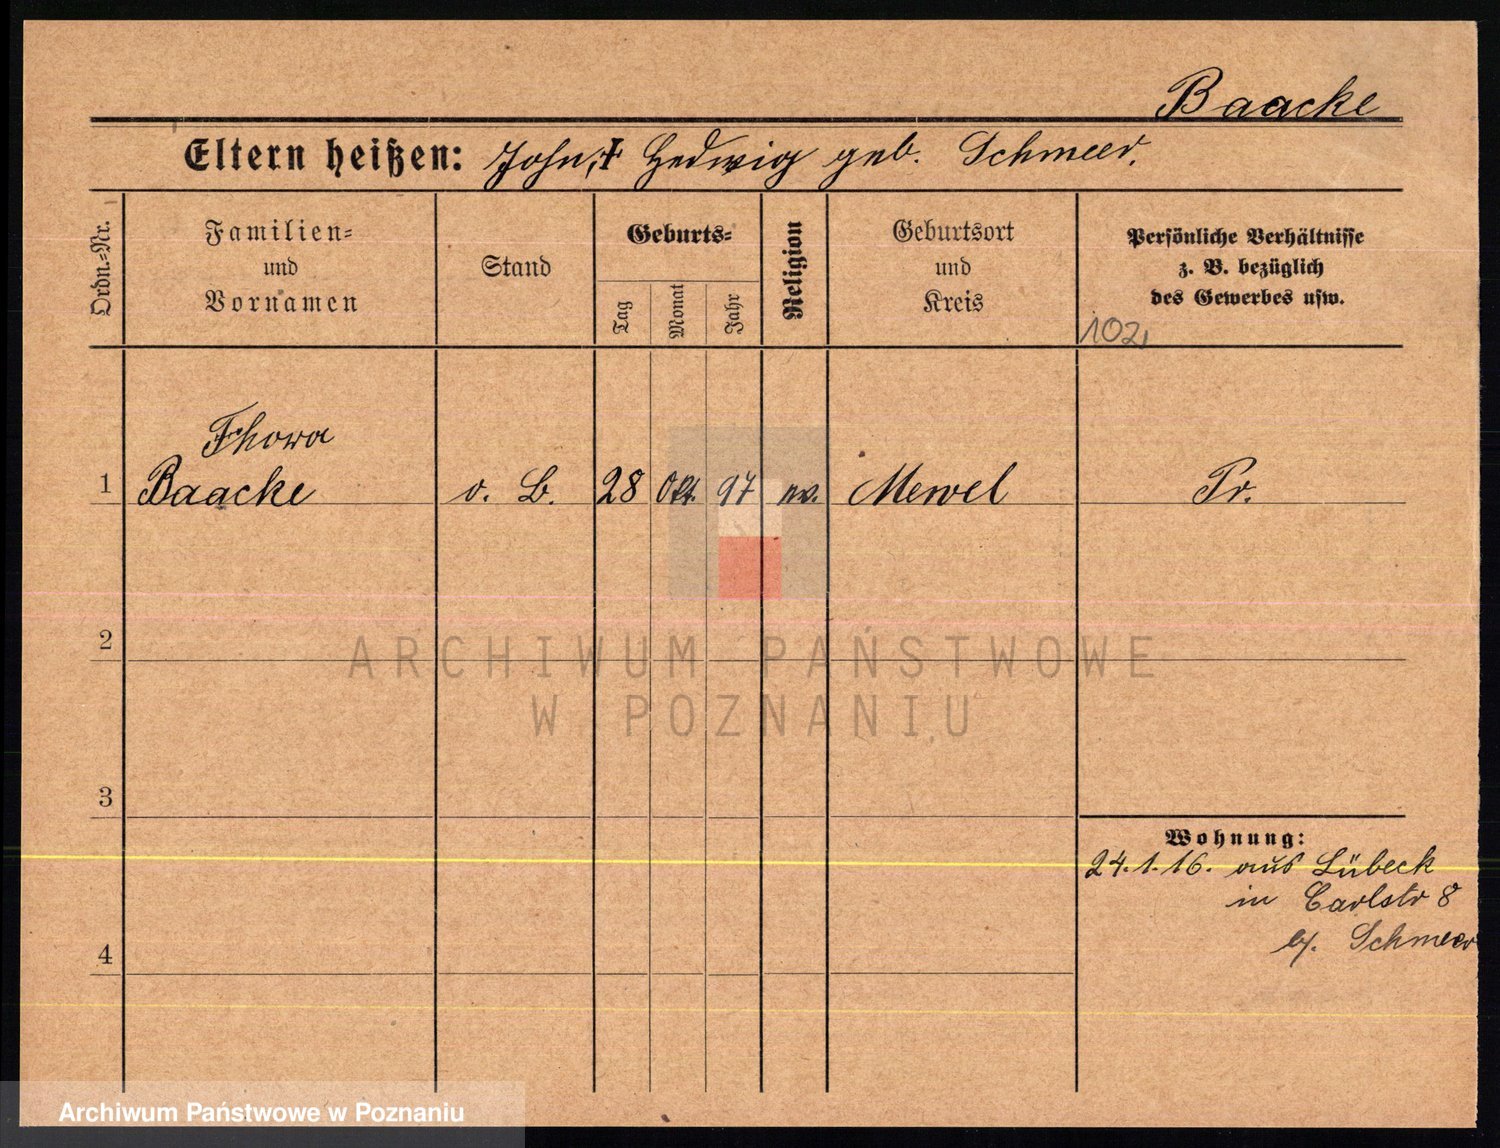 Baacke
Eltern heißen: John, † Hedwig geb. Schmeer.
Ordn.-Nr.
Familien-
und
Vornamen
Stand
Geburts-
Tag
Monat
Jahr
Religion
Geburtsort
und
Kreis
Persönliche Verhältnisse
z. B. bezüglich
des Gewerbes usw.
102,
Thora
1 Baacke o. B. 28 Okt. 97 ev. Mewel Pr.
2
ARCHIWUM PAŃSTWOWE
W POZNANIU
3
Wohnung:
24.1.16. aus Lübeck
in Carlstr 8
b/. Schmeer
4
Archiwum Państwowe w Poznaniu